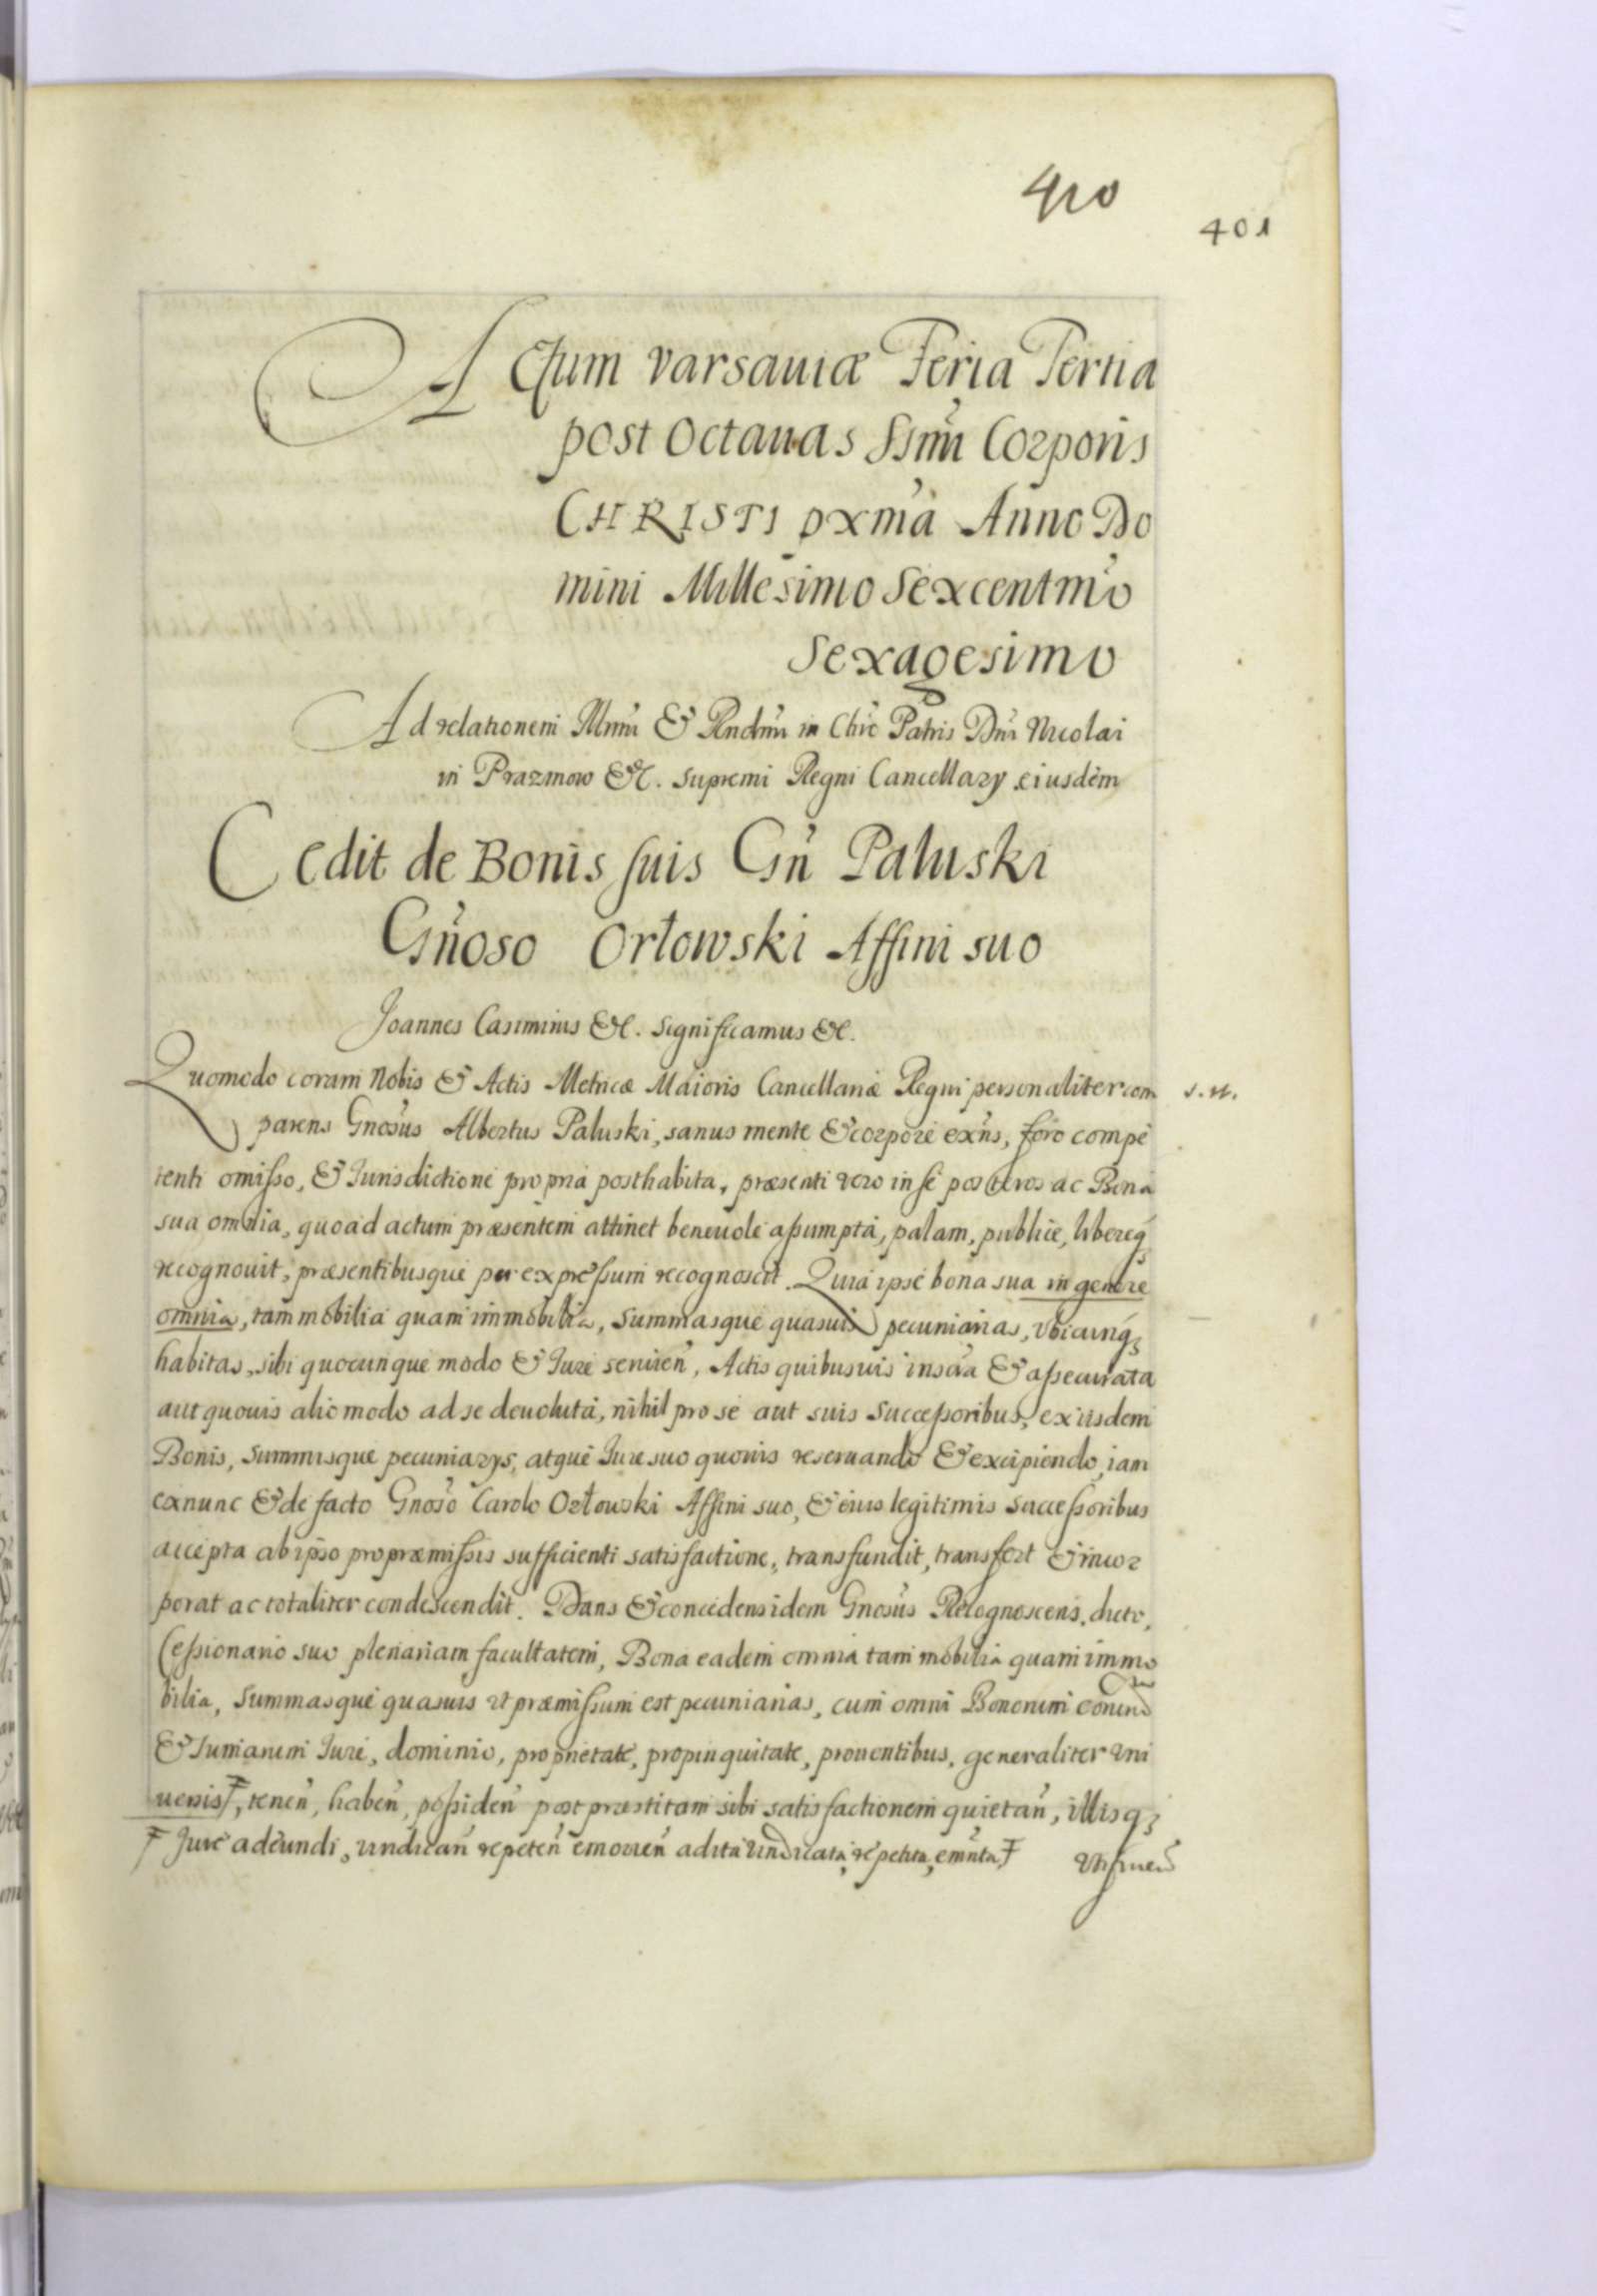 410
401
Actum Varsauiæ Feria Tertia
post Octauas Ssmi Corporis
CHRISTI pxma Anno Do
mini Millesimo Sexcentmo
Sexagesimo
Ad relationem Illmi & Rndmi in Chro Patris Dni Nicolai
in Prazmow &c. Supremi Regni Cancellarÿ eiusdem
Cedit de Bonis suis Gn Paluski
Gnoso Orłowski Affini suo
Joannes Casimirus &c. Significamus &c.
Quomodo coram Nobis & Actis Metricæ Maioris Cancellariæ Regni personaliter com
s. n.
parens Gnosus Albertus Paluski, sanus mente & corpore exns, foro compe
tenti omisso, & Jurisdictione propria posthabita, præsenti vero in se posteros ac Bona
sua omnia, quoad actum præsentem attinet beneuole assumpta, palam, publice, libereq3
recognouit, præsentibusque per expressum recognoscit. Quia ipse bona sua in genere
omnia, tam mobilia quam immobilia, Summasque quasuis pecuniarias, vbicunq3
habitas, sibi quocunque modo & Jure seruien, Actis quibusuis inscta & assecurata
aut quouis alio modo ad se deuoluta, nihil pro se aut suis Successoribus, ex iisdem
Bonis, Summisque pecuniarÿs, atque Jure suo quouis reseruando & excipiendo, iam
exnunc & de facto Gnoso Carolo Orłowski Affini suo, & eius legitimis Successoribus
accepta ab ipso pro præmissis sufficienti satisfactione, transfundit, transfert & incor
porat ac totaliter condescendit. Dans & concedens idem Gnosus Recognoscens, dicto,
Cessionario suo plenariam facultatem, Bona eadem omnia tam mobilia quam immo
bilia, Summasque quasuis vt præmissum est pecuniarias, cum omni Bonorum eorund
& Sumarum Jure, dominio, proprietate, propinquitate, prouentibus, generaliter vni
uersis, tenen, haben, possiden post præstitam sibi satisfactionem quietan, illisq3
Jure adeundi, vindican repeten emouen adita vindicata, repetita, emnta
vtifruen